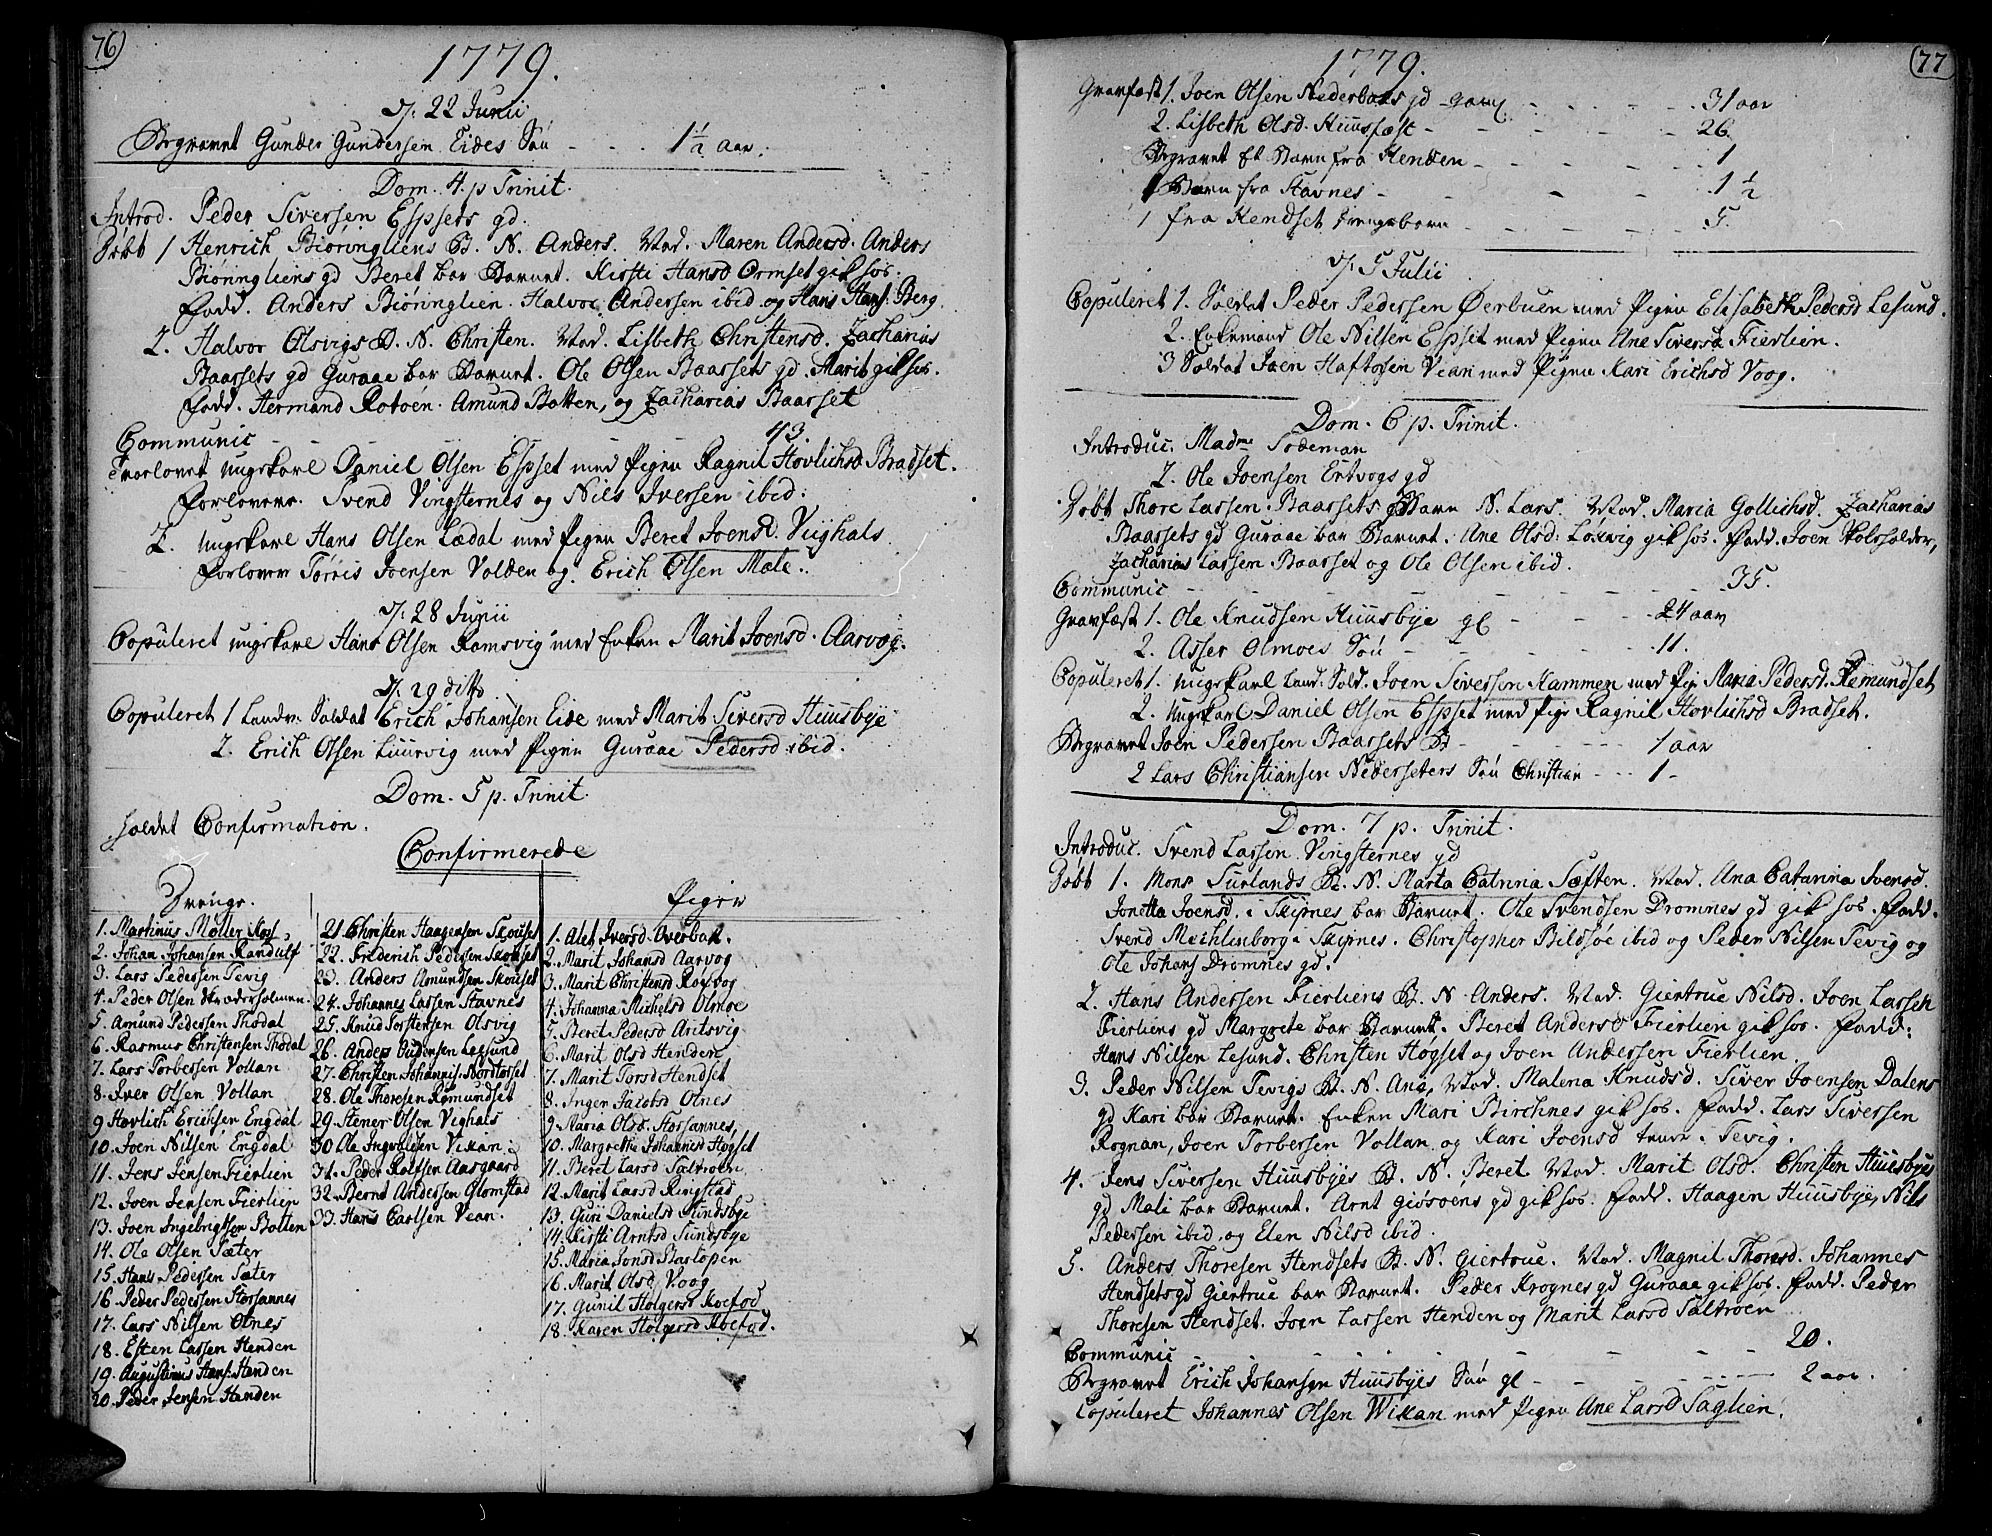 76)
1779.
d: 22 Junii
Begravet Gunder Gundersen Eides Søn - - - 1 1/2 aar.
Dom. 4. p Trinit.
Introd. Peder Siversen Espsets gd.
Døbt 1 Henrich Biøringliens B. N. Anders. Vod. Maren Andersd. Anders
Biøringliens gd Beret bar Barnet. Kirsti Hansd Ormset gik hos.
Fadd. Anders Biøringlien. Halvor Andersen ibid og Hans Hans: Berg.
2. Halvor Olsvigs B. N. Christen. Vod. Lisbeth Christensd. Zacharias
Baarsets gd Guraae bar Barnet. Ole Olsen Baarsets gd. Marit gik hos.
Fadd. Hermand Rotøen. Amund Botten, og Zacharias Baarset
Communic - - 43.
Trorlovet ungkarl Daniel Olsen Espset med Pigen Ragnil Hovlichsd Bradset.
Forlovere. Svend Vingsternes og Nils Iversen ibid.
2. ungkarl Hans Olsen Lædal med Pigen Beret Joensd. Viighals
Forlover Tørris Joensen Volden og Erich Olsen Mæle.
d: 28 Junii
Copuleret ungkarl Hans Olsen Ramsvig med Enken Marit Joensd. Aarvog.
d: 29 ditto
Copuleret 1 Landv. Soldat Erich Johansen Eide med Marit Siversd Huusbye
2. Erich Olsen Liurvig med Pigen Guraae Pedersd ibid.
Dom. 5 p. Trinit
holdet Confirmation.
Confirmerede
Drenge.
1. Martinus Møller
2. Johan Johansen Randulf
3. Lars Pedersen Tevig
4. Peder Olsen
5. Amund Pedersen Thodal
6. Rasmus Christensen Thodal
7. Lars Torbersen Vollan
8. Iver Olsen Vollan
9 Hovlich Erichsen Engdal
10. Joen Nilsen Engdal
11. Jens Jensen Fierlien
12. Joen Jensen Fierlien
13. Joen Ingebrigtsen Botten
14. Ole Olsen Sæter
15. Hans Pedersen Sæter
16. Peder Pedersen Storsannes
17. Lars Nilsen Olnes
18. Esten Larsen Henden
19. Augustinus Hans: Henden
20. Peder Jensen Henden
21. Christen Haagensen Skouset
22. Friderich Pedersen Skouset
23. Anders Amundsen Skouset
24. Johannes Larsen Stavnes
25. Knud Torstensen Olsvig
26. Anders Oudensen Lesund
27. Christen Johannis: Nordtorset
28. Ole Thoresen Remundset
29. Stener Olsen Vighals
30 Ole Ingvoldsen Vikan
31. Peder Rolfsen Aasgaard
32. Bernt Andersen Glomstad
33. Hans Carlsen Vean
Piger
1. Alet Iversd. Averbak.
2. Marit Johansd Aarvog
3. Marit Christensd Røsvog
4. Johanna Michelsd Olmøe
5. Berit Pedersd Aritsvig
6. Marit Olsd Henden
7. Marit Torsd Hendset
8. Inger Jacobsd Olnes
9. Maria Olsd. Storsannes,
10. Margrethe Johannesd Høgset
11. Beret Larsd Saltrøen
12. Marit Larsd Ringstad
13. Guri Danielsd Sundsbye
14. Kirsti Arntsd Sundsbye
15. Maria Jonsd Barlopen
16. Marit Olsd. Voog
17. Gunil Holgersd Koefod
18. Karen Holgersd Koefod.
77
1779.
Gravfæst 1. Joen Olsen Nederbøes gd - gaml - - - 31 aar
2. Lisbeth Olsd. Huusfæst - - - 26.
Begravet Et Barn fra Henden - - - 1
1 Barn fra Stavnes - - - 1 1/2
1 fra Hendset Drengebarn - - - 5.
d: 5 Julii
Copuleret 1. Soldat Peder Pedersen Ørbuen med Pigen Elisabeth Pedersd Lesund.
2. Enkemand Ole Nilsen Espset med Pigen Ane Siversd Fierlien.
3 Soldat Joen Haftorsen Vean med Pigen Kari Erichsd Voog.
Dom. 6 p. Trinit.
Introduc. Madme Todeman
2. Ole Joensen Ertvogs gd
Døbt Thore Larsen Baarsets Barn N. Lars. Vod. Maria Gollichsd. Zacharias
Baarsets gd Guraae bar Barnet. Ane Olsd: Løkvig gik hos. Fadd. Joen Skoleholder,
Zacharias Larsen Baarset og Ole Olsen ibid.
Communic - - - 35.
Gravfæst 1. Ole Knudsen Huusbye gl - - - 24 aar
2. Asser Olmoes Søn - - - 11.
Copuleret 1. ungkarl Land. Sold. Joen Siversen Hammen med Pig Maria Pedersd. Remundset
2. ungkarl Daniel Olsen Espset med Pige Ragnil Hovlichsd Bradset.
Begravet Joen Pedersen Baarsets B - - - 1 aar
2 Lars Christiansen Nederseters Søn Christian - - - 1 -
Dom. 7 p. Trinit.
Introduc. Svend Larsen Vingsternes gd
Døbt 1. Mons Surlands B. N. Marta Catrina Sæften. Vod. Ana Catarina Ivensd.
Jonetta Joensd. i Skipnes bar Barnet. Ole Svendsen Dromnes gd gik hos. Fadd.
Svend Mechlenborg i Skipnes. Christopher Bildsøe ibid og Peder Nilsen Tevig og
Ole Johans Dromnes gd.
2. Hans Andersen Fierliens B. N Anders. Vod. Giertrue Nilsd. Joen Larsen
Fierliens gd Margrete bar Barnet. Beret Andersd Fierlien gik hos. Fadd:
Hans Nilsen Lesund. Christen Høgset og Joen Andersen Fierlien.
3. Peder Nilsen Tevigs B. N. Ana, Vod. Malena Knudsd. Siver Joensen Dalens
gd Kari bar Barnet. Enken Mari Birchnes gik hos. Fadd. Lars Siversen
Rognan, Joen Torbersen Vollan og Kari Joensd tener i Tevig.
4. Jens Siversen Huusbyes B. N. Beret. Vod. Marit Olsd. Christen Huusbyes
gd Mali bar Barnet. Arnt Giøsøens gd gik hos. Fadd. Haagen Huusbye, Nils
Pedersen ibid, og Elen Nilsd ibid.
5. Anders Thoresen Hendsets B. N. Giertrue. Vod. Magnil Thoresd. Johannes
Hendsets gd Giertrue bar Barnet. Peder Krognes gd Guraae gik hos. Fadd. Peder
Thoresen Hendset. Joen Larsen Henden og Marit Larsd Saltrøen
Communic - - - 20.
Begravet Erich Johansen Huusbyes Søn gl - - - 2 aar.
Copuleret Johannes Olsen Wikan med Pigen Ane Larsd Saglien.